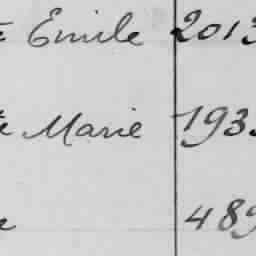 Emile 2013
Marie 193
489